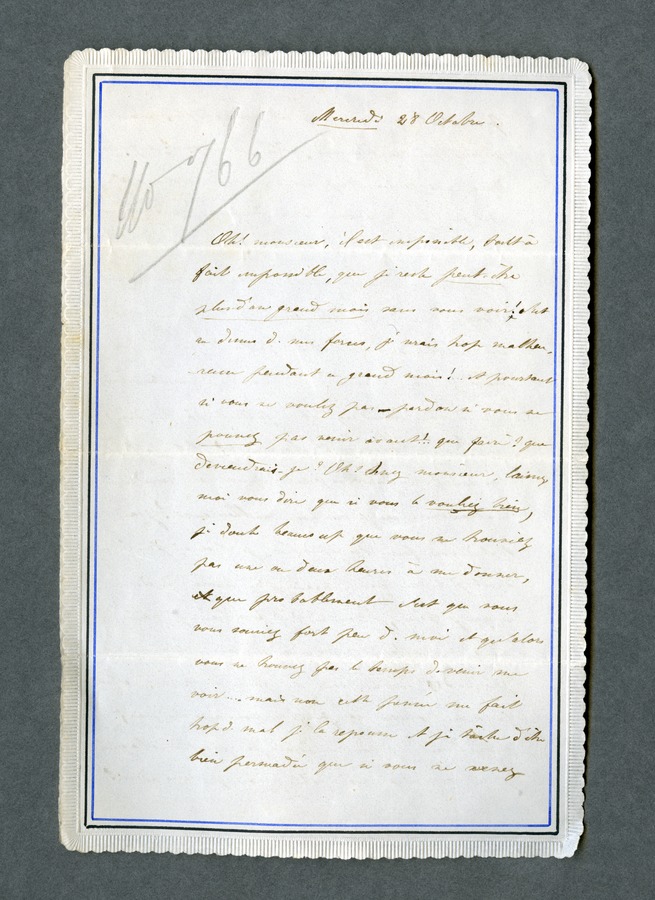 Mercredi 28 Octobre.
no 766
Oh! monsieur, il est impossible, tout à
fait impossible, que je reste peut être
plus d'un grand mois sans vous voir! c'est
au dessus de mes forces, je serais trop malheu-
reuse pendant un grand mois!.. et pourtant
si vous ne voulez pas - pardon si vous ne
pouvez pas venir avant!! que faire? que
deviendrais-je? Oh! tenez monsieur, laissez
moi vous dire que si vous le vouliez bien,
je doute beaucoup que vous ne trouviez
pas une ou deux heures à me donner,
et que probablement c'est que vous
vous souciez fort peu de moi et qu'alors
vous ne trouvez pas le temps de venir me
voir... mais non cette pensée me fait
trop de mal je la repousse et je tâche d'être
bien persuadée que si vous ne venez